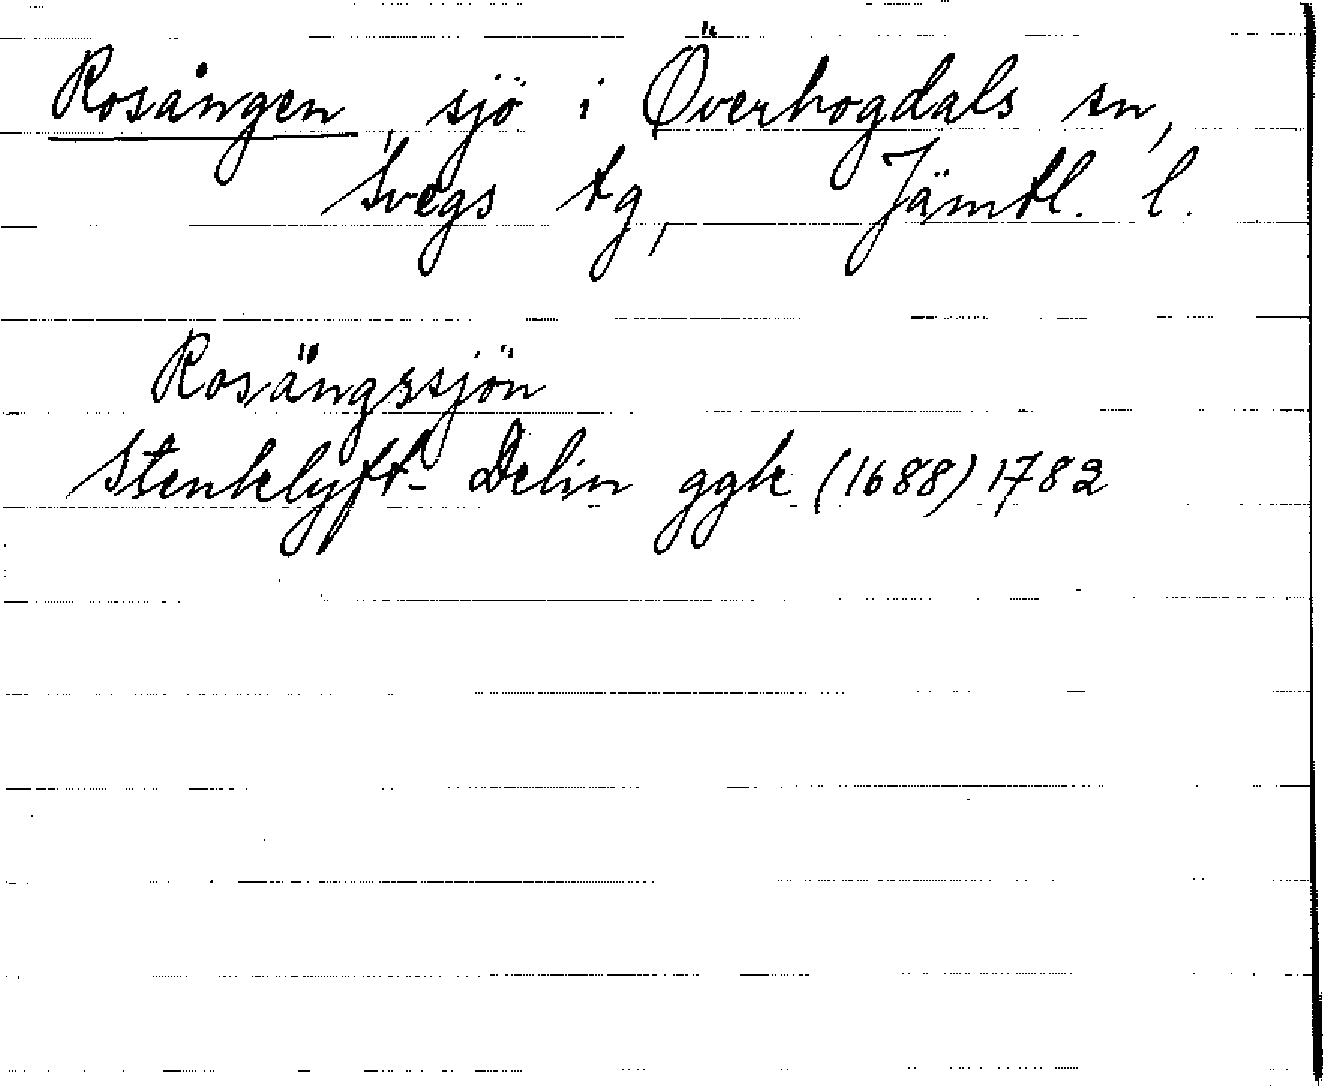 Rosången, sjö i Överhogdals sn,
Svegs tg, Jämtl. l.
Rosängssjön
Stenklyft-Delin ggk (1688) 1782